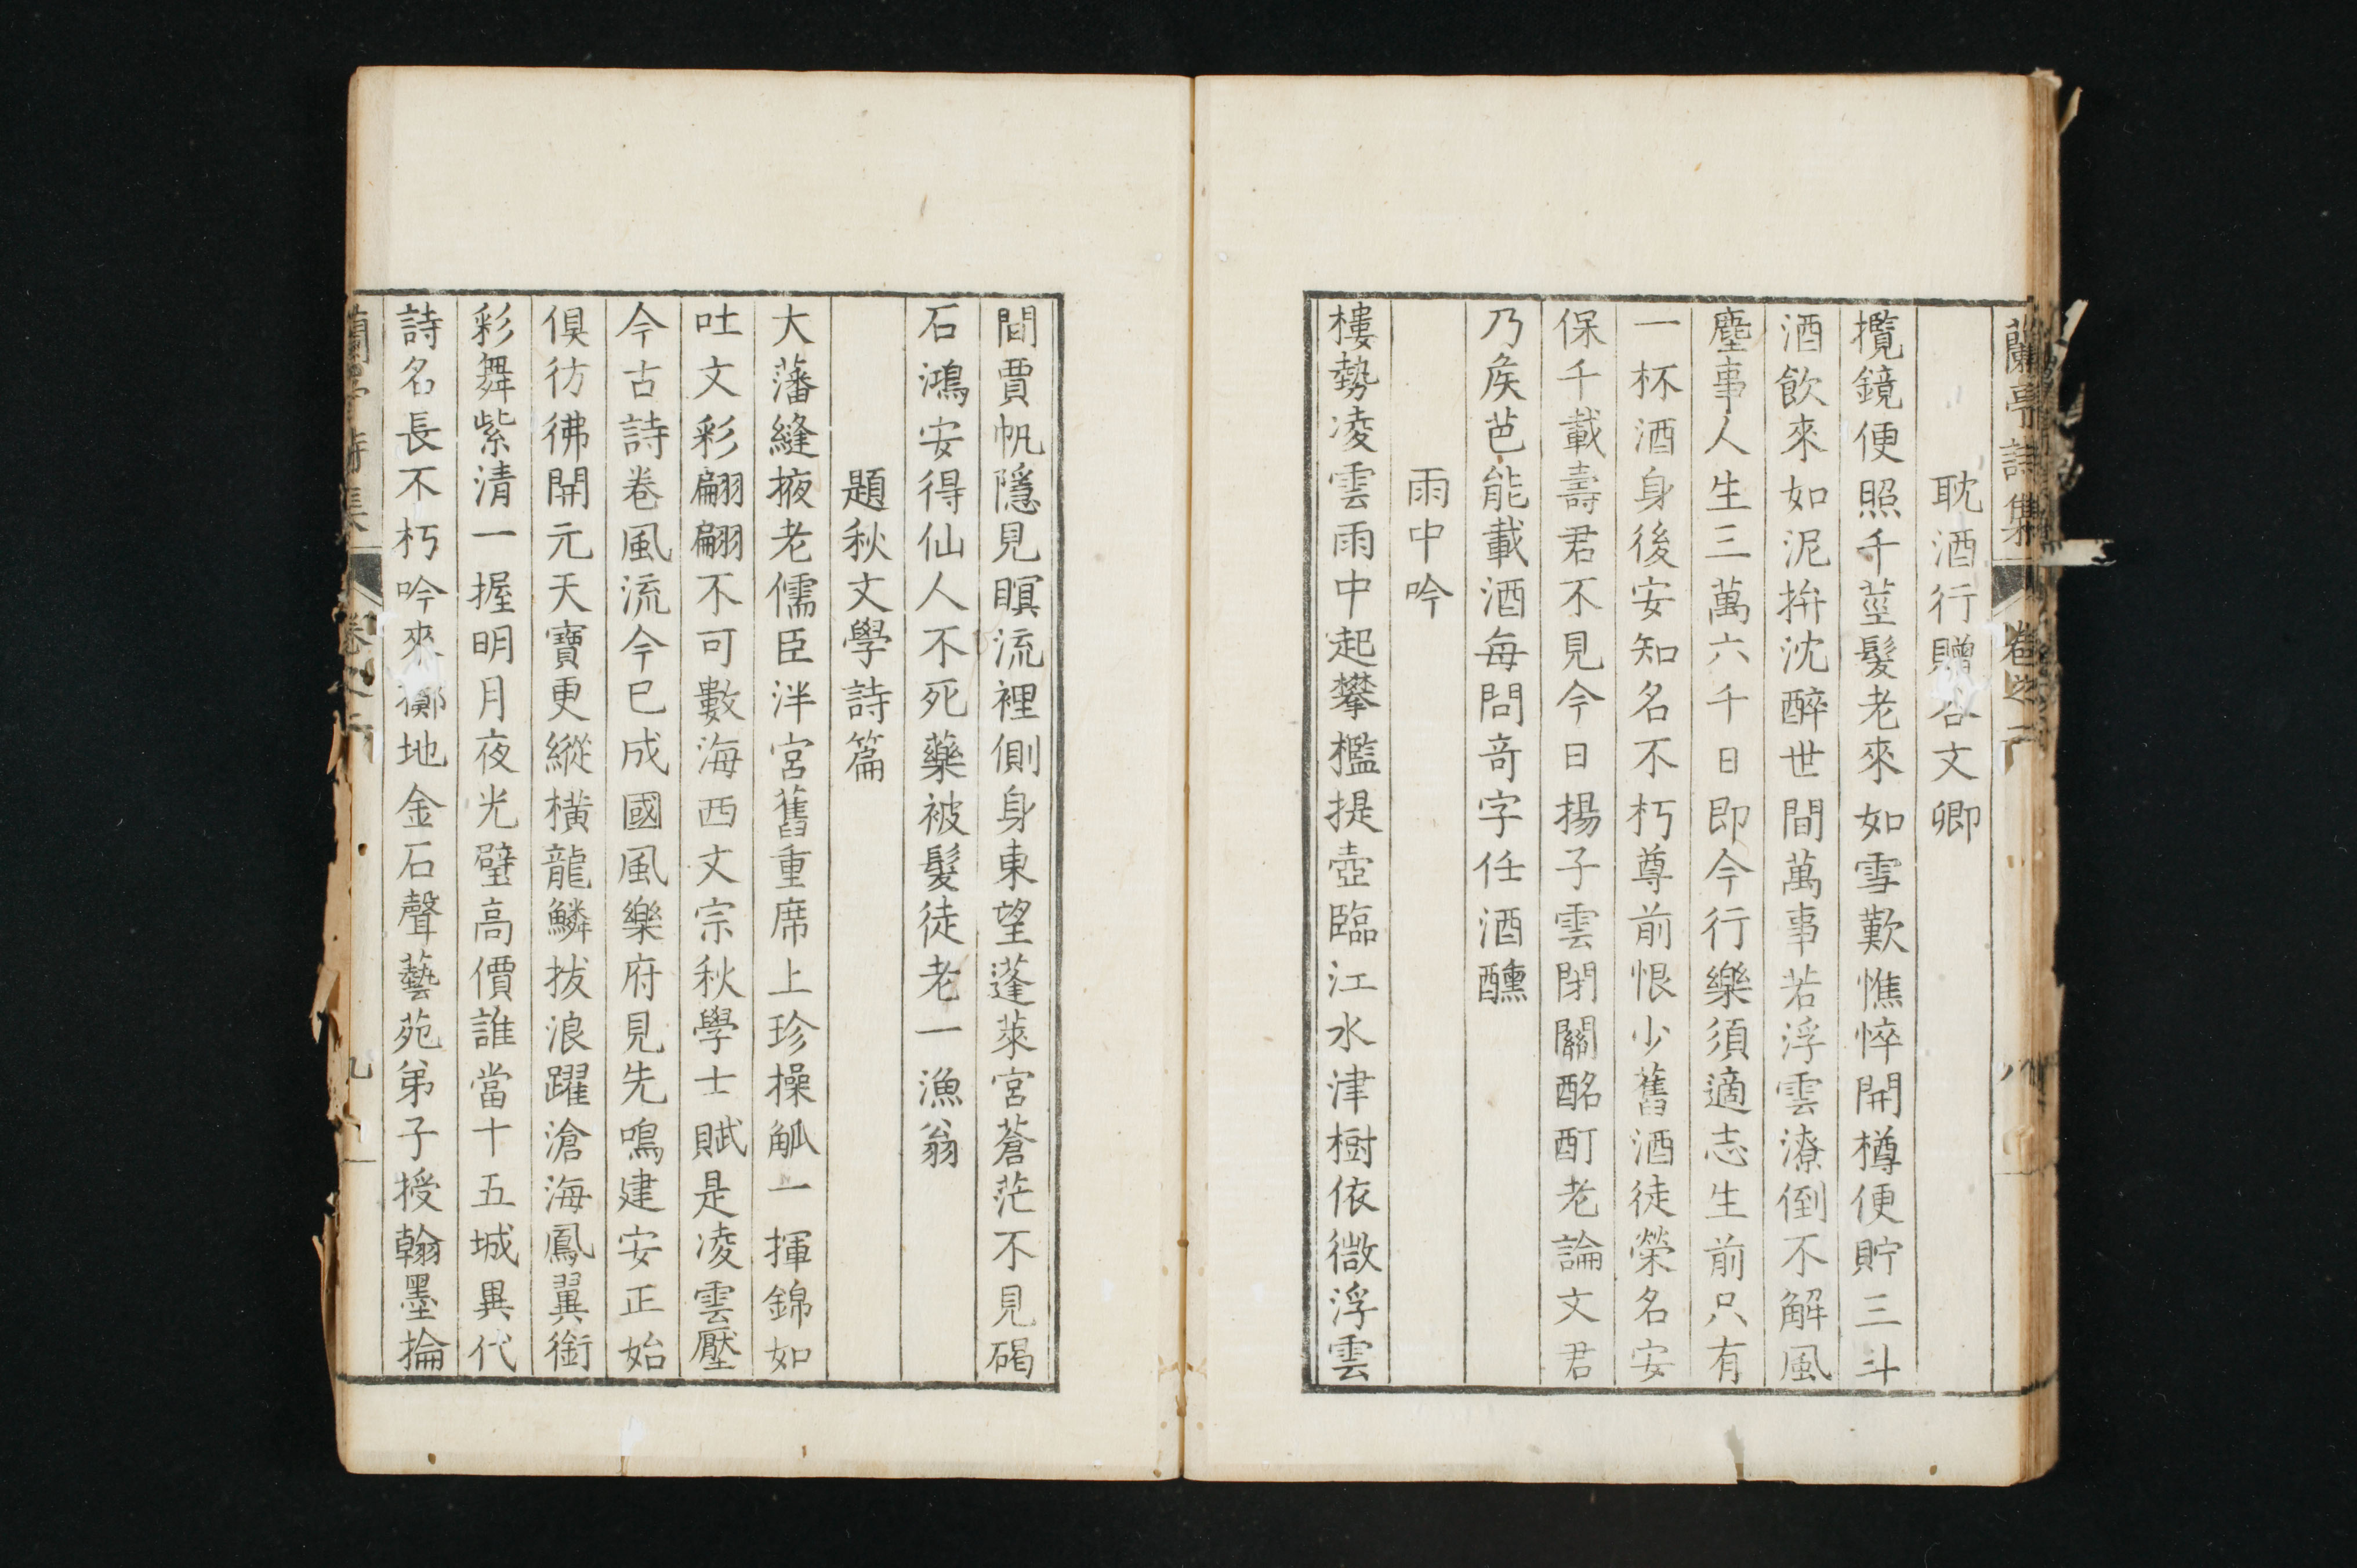 蘭亭詩集 卷之二 八
耽酒行贈谷文卿
攬鏡便照千莖髮老來如雪歎憔悴開樽便貯三斗
酒飲來如泥拚沈醉世間萬事若浮雲潦倒不解風
塵事人生三萬六千日即今行樂須適志生前只有
一杯酒身後安知名不朽尊前恨少舊酒徒榮名安
保千載壽君不見今日揚子雲閉關酩酊老論文君
乃矦芭能載酒每問奇字任酒醺
雨中吟
樓勢凌雲雨中起攀檻提壺臨江水津樹依微浮雲
間賈帆隱見瞑流裡側身東望蓬萊宮蒼茫不見碣
石鴻安得仙人不死藥被髮徒老一漁翁
題秋文學詩篇
大藩縫掖老儒臣泮宮舊重席上珍操觚一揮錦如
吐文彩翩翩不可數海西文宗秋學士賦是凌雲壓
今古詩卷風流今已成國風樂府見先鳴建安正始
俱彷彿開元天寶更縱橫龍鱗拔浪躍滄海鳳翼銜
彩舞紫清一握明月夜光璧高價誰當十五城異代
詩名長不朽吟來擲地金石聲藝苑弟子授翰墨掄
蘭亭詩集 卷之二 九